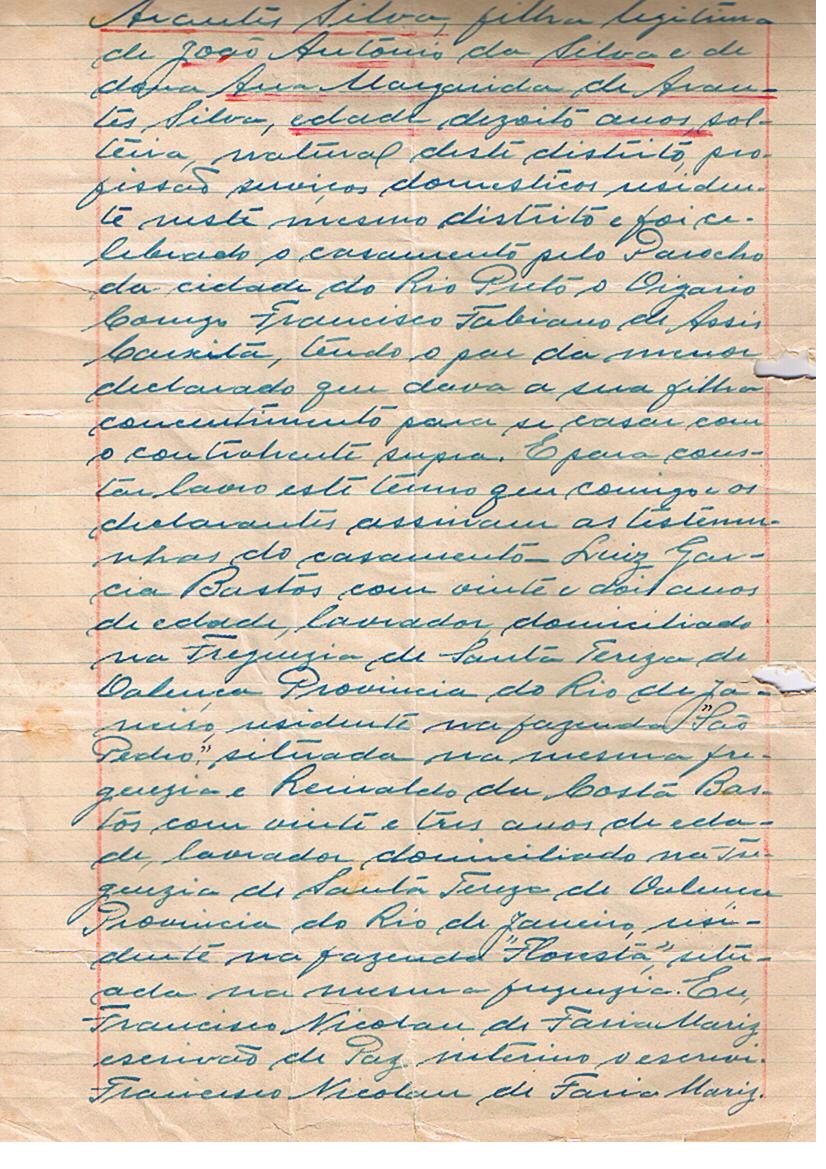 Arantes Silva, filha legitima
de João Antônio da Silva e de
dona Ana Margarida de Aran-
tes Silva, edade dezoito anos, sol-
teira, natural deste distrito, pro-
fissão serviços domesticos residen-
te neste mesmo distrito e foi ce-
librado o casamento pelo Parocho
da cidade do Rio Preto o Vigario
Conego Francisco Fabiano de Assis
tendo o pai da menor
declarado que dava a sua filha
concentimento para se casar com
o contrahente supra. E para cons-
tar lavro este termo que comigo e os
declarantes assinam as testemu-
nhas do casamento – Luiz Gar-
cia Bastos com vinte e dois anos
de edade, lavrador, domiciliado
na Freguezia de Santa Tereza de
Valença Provincia do Rio de Ja-
neiro, residente na fazenda "São
Pedro," situada na mesma fre-
guezia e Reinaldo da Costa Bas-
tos com vinte e tres anos de eda-
de, lavrador, domiciliado na Fre-
guezia de Santa Tereza de Valença
Provincia do Rio de Janeiro, resi-
dente na fazenda "Floresta", situ-
ada na mesma freguezia. Eu,
Francisco Nicolau de Faria Mariz
escrivão de Paz interino o escrevi.
Francisco Nicolau de Faria Mariz.